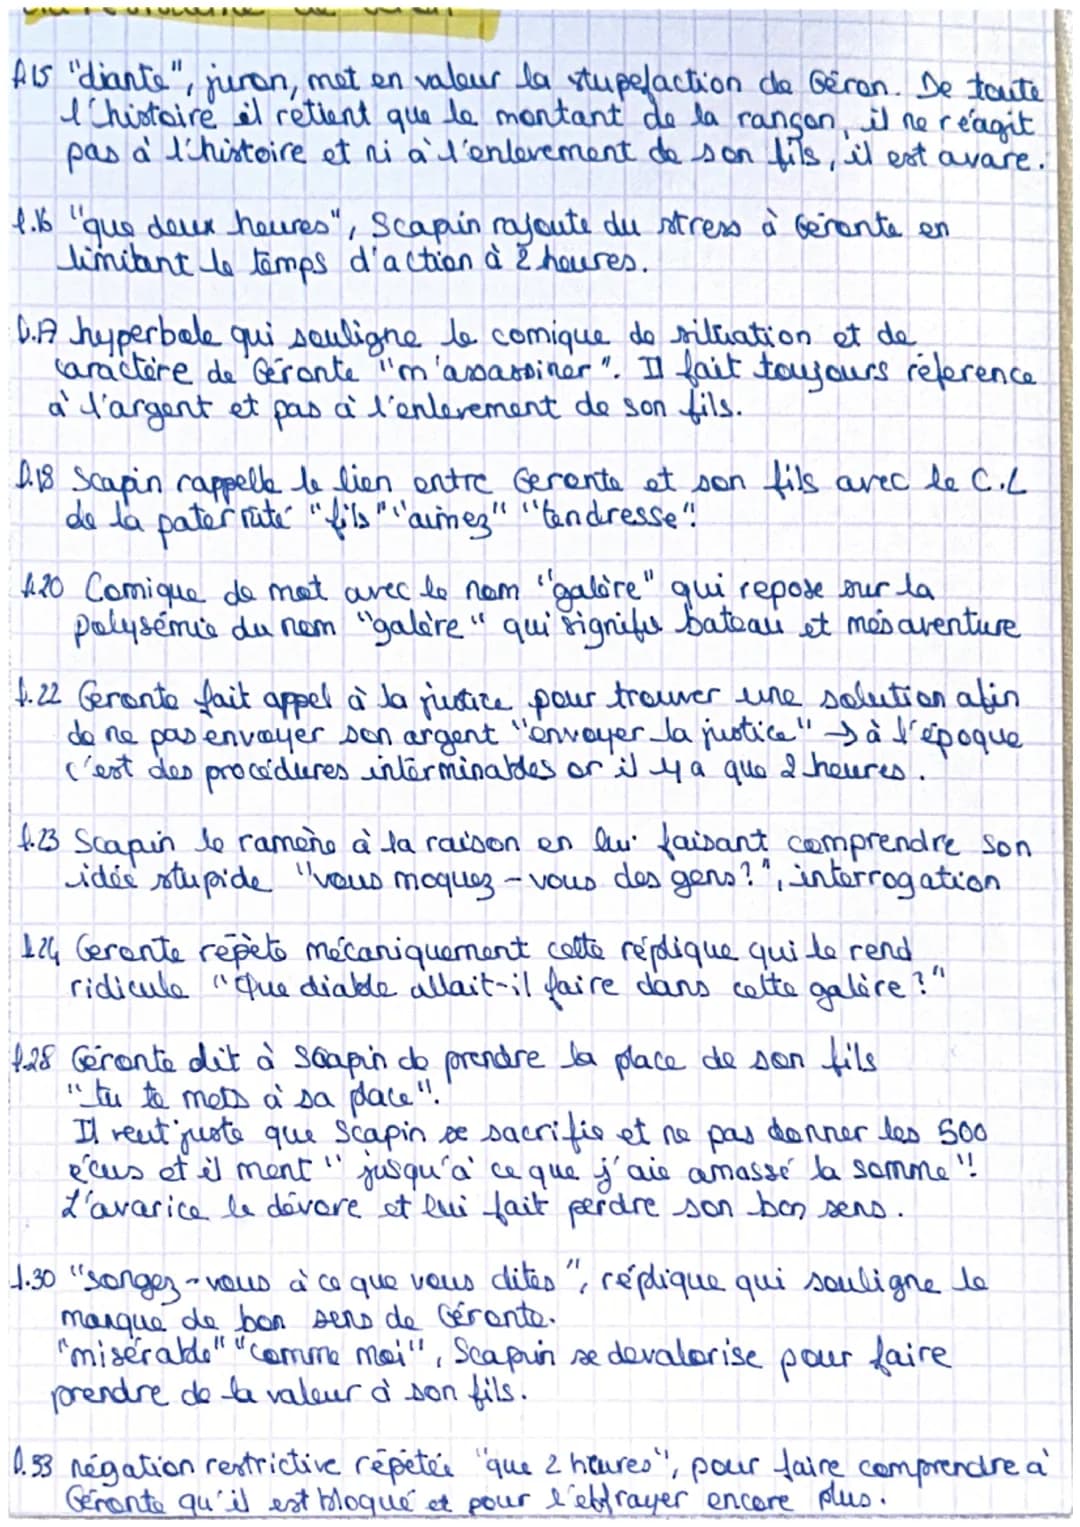 l.15 "diante", juron, met en valeur la stupefaction de Géron. De toute
l'histoire il retient que le montant de la rançon, il ne réagit
pas à l'histoire et ni à l'enlevement de son fils, il est avare.
l.16 "que deux heures", Scapin rajoute du stress à Géronte en
limitant le temps d'action à 2 heures.
l.17 hyperbole qui souligne le comique de situation et de
caractère de Géronte "m'assassiner". Il fait toujours réference
à l'argent et pas à l'enlevement de son fils.
l.18 Scapin rappelle le lien entre Geronte et son fils avec le C.L
de la paternité "fils" "aimez" "tendresse".
l.20 Comique de mot avec le nom "galère" qui repose sur la
polysémie du nom "galère" qui signifie bateau et mésaventure
l.22 Geronte fait appel à la justice pour trouver une solution afin
de ne pas envoyer son argent "envoyer la justice" → à l'époque
c'est des procédures interminables or il y a que 2 heures.
l.23 Scapin le ramène à la raison en lui faisant comprendre son
idée stupide "vous moquez-vous des gens?", interrogation
l.24 Geronte répète mécaniquement cette réplique qui le rend
ridicule "Que diable allait-il faire dans cette galère?"
l.28 Géronte dit à Scapin de prendre la place de son fils
"tu te mets à sa place".
Il veut juste que Scapin se sacrifie et ne pas donner les 500
écus et il ment "jusqu'à ce que j'aie amassé la somme".
L'avarice le dévore et lui fait perdre son bon sens.
l.30 "songez-vous à ce que vous dites", réplique qui souligne le
manque de bon sens de Géronte.
"misérable" "comme moi", Scapin se devalorise pour faire
prendre de la valeur à son fils.
l.33 négation restrictive répétée "que 2 heures", pour faire comprendre à
Géronte qu'il est bloqué et pour l'effrayer encore plus.